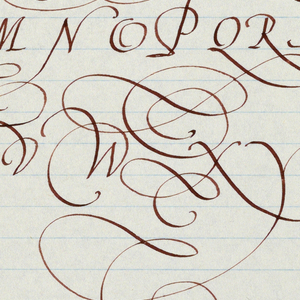 M N O P Q R S
V W X Y